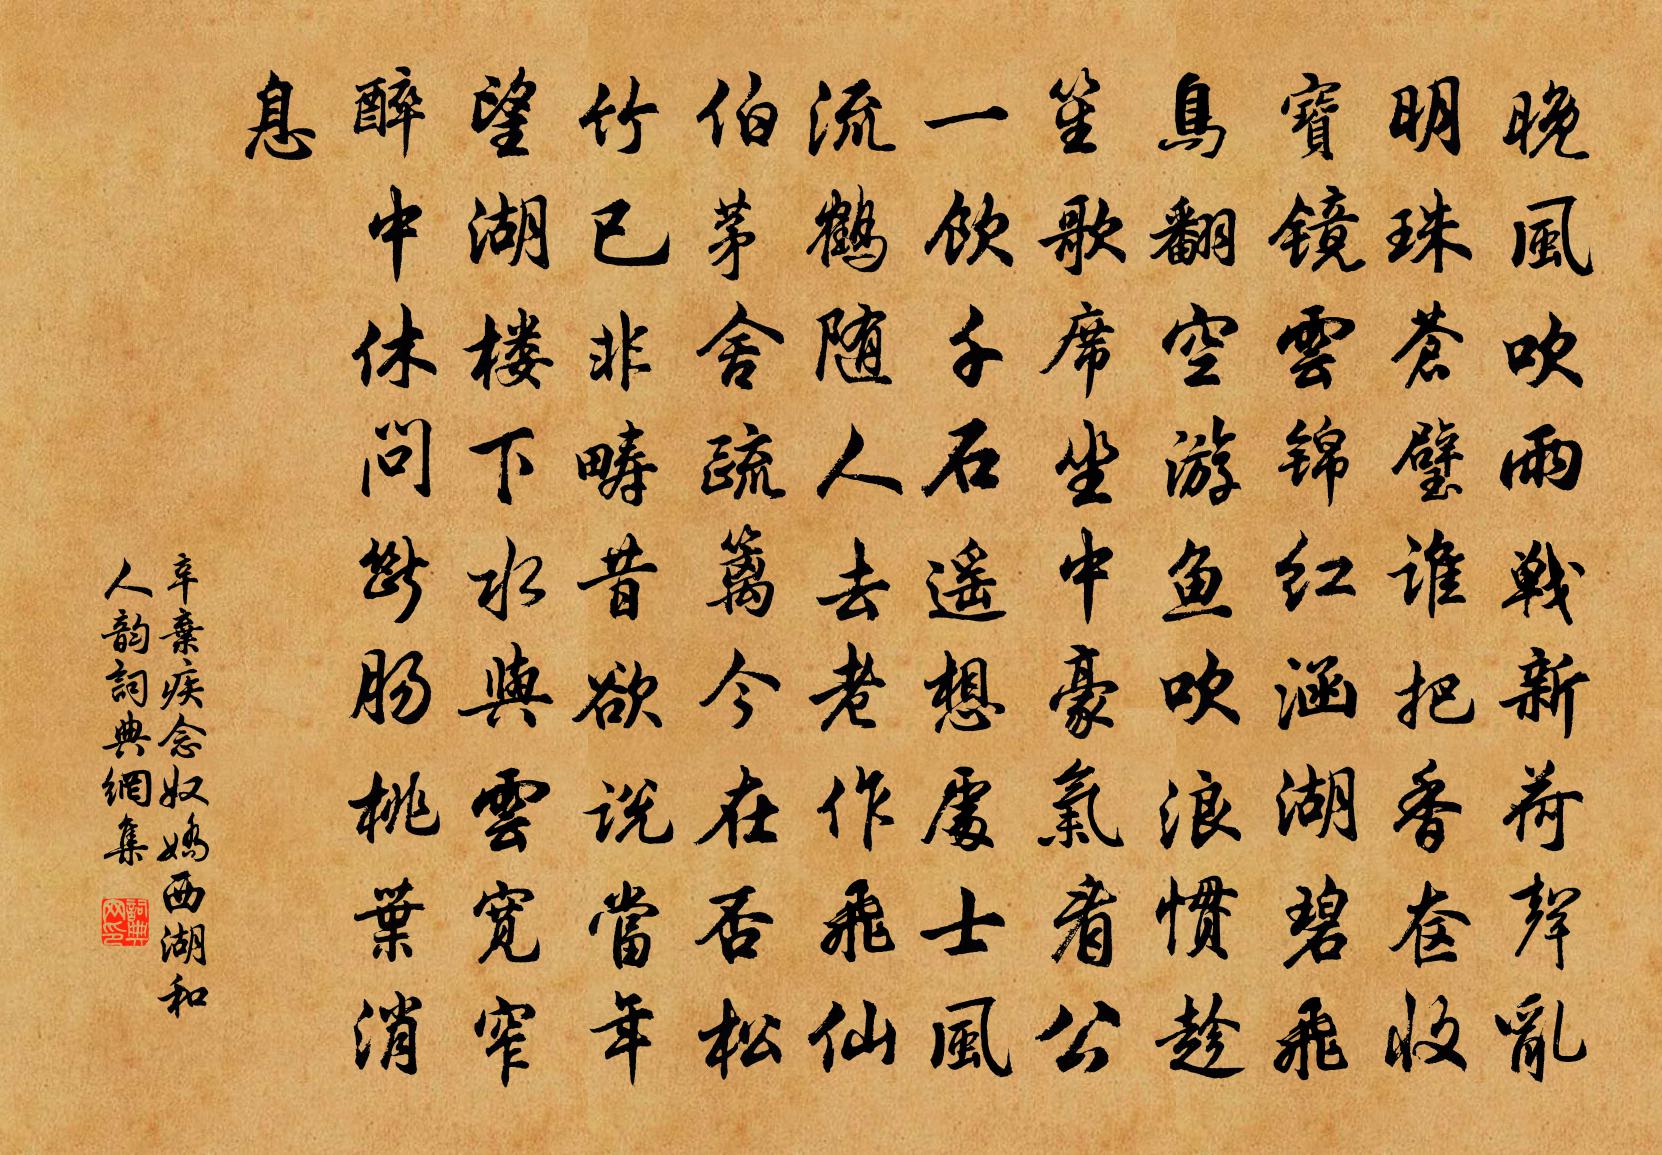 晚風吹雨戰新荷聲亂
明珠蒼璧誰把香奁收
寶镜雲锦红涵湖碧飛
鳥翻空游鱼吹浪惯趁
笙歌席坐中豪氣看公
一飲千石遥想處士風
流鶴随人去老作飛仙
伯茅舍疏篱今在否松
竹已非疇昔欲说當年
望湖楼下水與雲寬窄
醉中休問断肠桃葉消
息
辛棄疾念奴嬌西湖和
人韵詞典網集
詞典网印